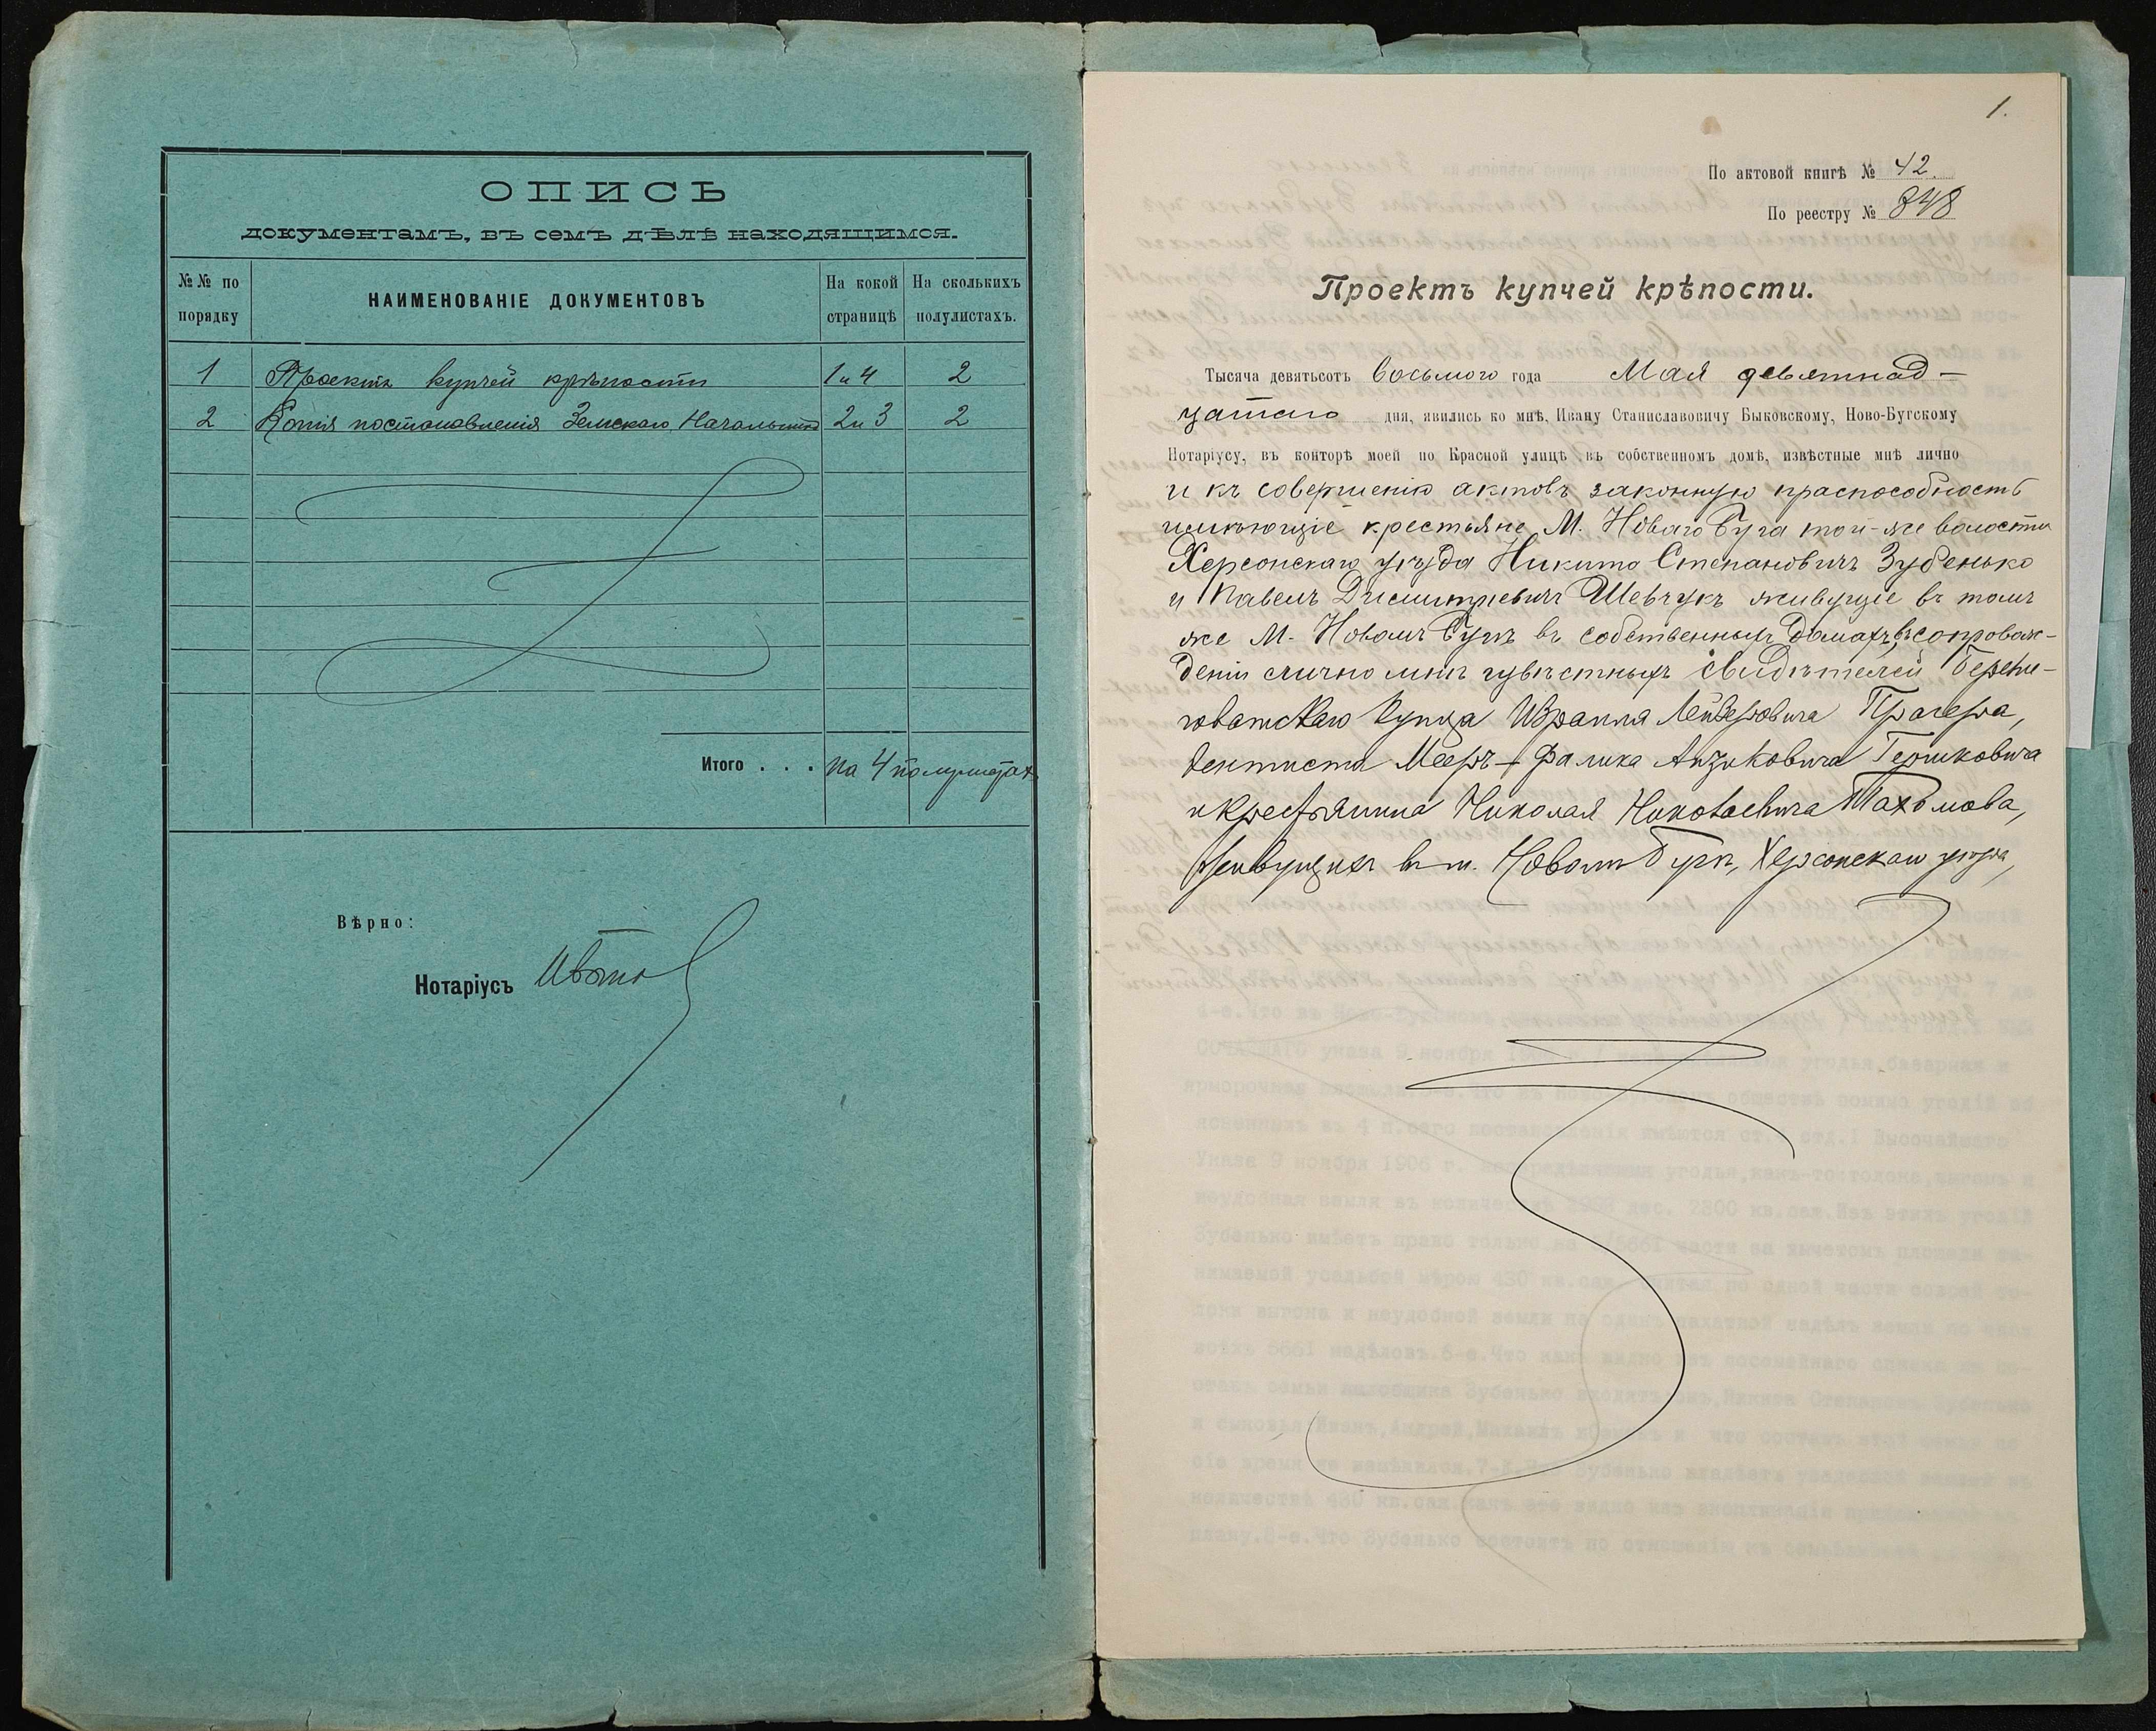 ОПИСЬ
документамъ, въ семъ дѣлѣ находящимся.
№№ по порядку
НАИМЕНОВАНІЕ ДОКУМЕНТОВЪ
На какой страницѣ
На сколькихъ полулистахъ.
1 Проектъ купчей крѣпости 1 и 4 2
2 Копія постановленія Земскаго Начальника 2 и 3 2
Итого . . . на 4 полулистах
Вѣрно:
Нотаріусъ
1.
По актовой книгѣ № 42.
По реестру № 848
Проектъ купчей крѣпости.
Тысяча девятьсотъ восьмого года Мая девятнад-
цатаго дня, явились ко мнѣ, Ивану Станиславовичу Быковскому, Ново-Бугскому
Нотаріусу, въ конторѣ моей по Красной улицѣ въ собственномъ домѣ, извѣстные мнѣ лично
и къ совершенію актовъ законную праспособность
имѣющіе крестьяне М. Новаго Буга той-же волости
Херсонскаго уѣзда Никита Степановичъ Зубенько
и Павелъ Димитріевичъ Шевчукъ живущіе въ томъ
же М. Новомъ Бугѣ въ собственныхъ домахъ, въ сопровож-
деніи лично мнѣ извѣстныхъ свидѣтелей Берези-
говатскаго купца Израиля Лейзеровича Прагера,
дентиста Меерь-Фалика Айзиковича Гершковича
и крестьянина Николая Николаевича Пахомова,
живущихъ въ м. Новомъ Бугѣ, Херсонскаго уѣзда,